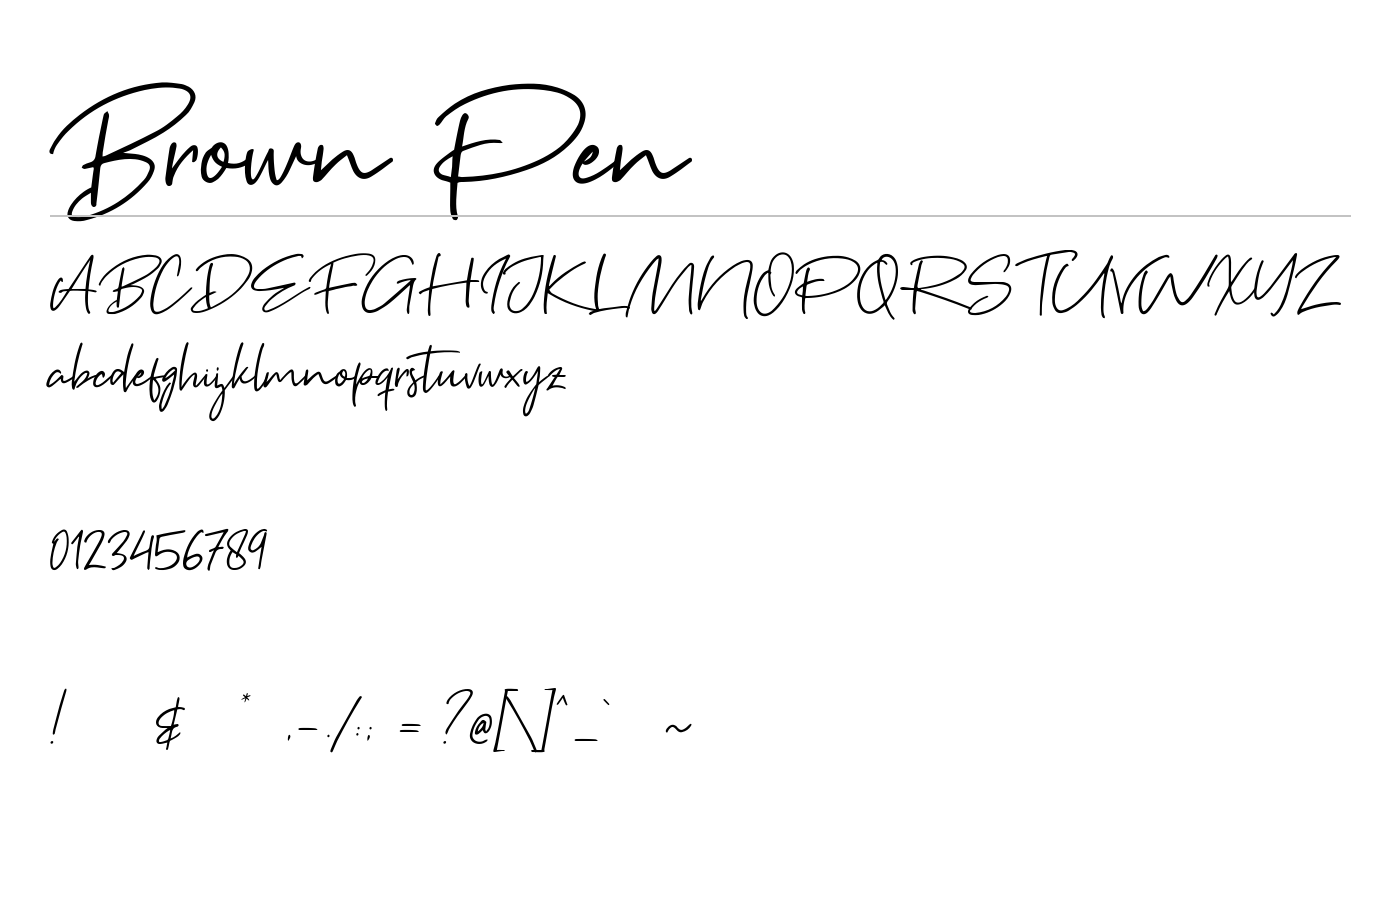 Brown Pen
ABCDEFGHIJKLMNOPQRSTUVWXYZ
abcdefghijklmnopqrstuvwxyz
0123456789
! & * ,-./:; = ?@[\]^_` ~